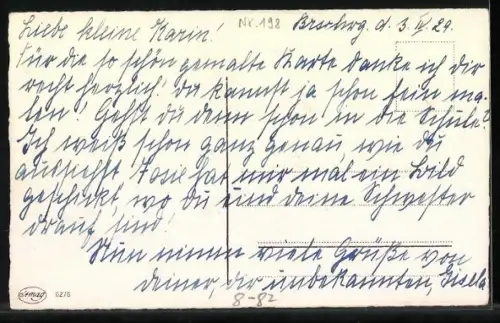 Nr. 198
Brschwg. d. 3. IV. 29.
Liebe kleine Karin!
Für die so schön gemalte Karte danke ich dir
recht herzlich! da kannst ja schon fein ma-
len! Gehst du denn schon in die Schule?
Ich weiß schon ganz genau, wie du
aussiehst. hat mir mal ein Bild
geschickt, wo du und deine Schwester
drauf sind!
Nun nimm viele Grüße von
deiner, dir unbekannten, Gisela
6276
8-82